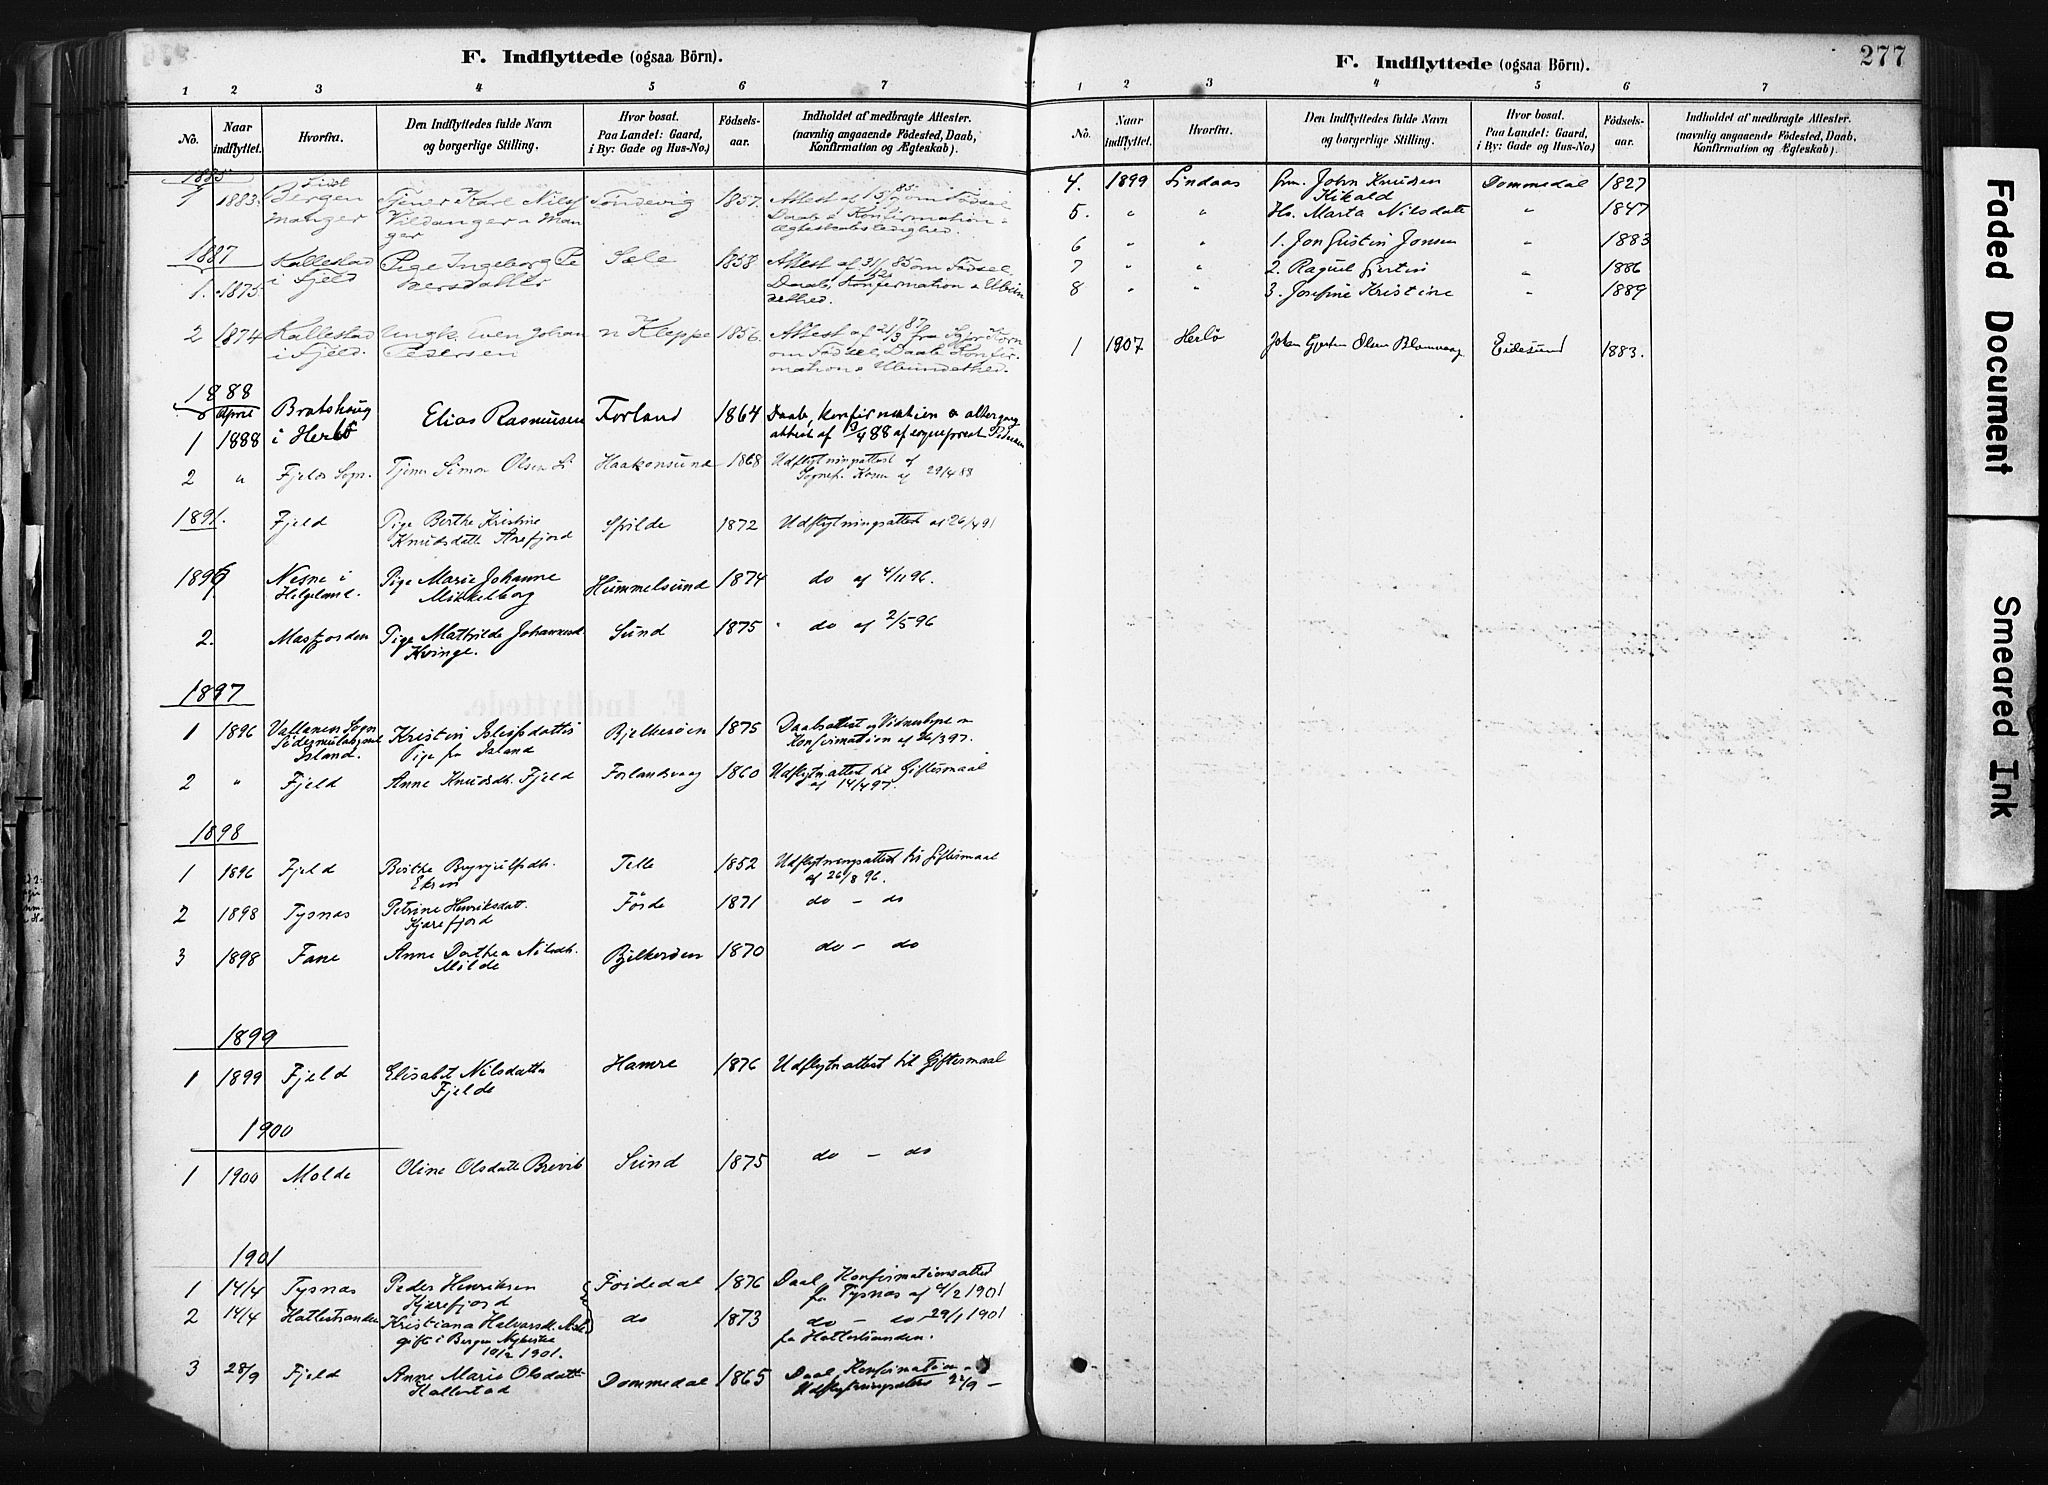 F. Indflyttede (ogsaa Börn).
1 2 3 4 5 6 7
No.
Naar indflyttet.
Hvorfra.
Den Indflyttedes fulde Navn
og borgerlige Stilling.
Hvor bosat.
Paa Landet: Gaard,
i By: Gade og Hus-No.)
Fødsels-
aar.
Indholdet af medbragte Attester.
(navnlig angaaende Fødested, Daab,
Konfirmation og Ægteskab).
1885
1 1883 Bergen Tjener Karl Nils Tøndevig 1857 Attest af om Fødsel
manger i Man Daab & Konfirmation
ger Ægteskabsledighed.
1887 Kallestad Pige Ingeborg Pe Sele 1858 Attest af 31/12 85 om Fødsel,
1. 1875 i Fjeld dersdatter Daab, Konfirmation & Ubun
dethed.
2 1874 Kallestad Ungk. Sven Johan n Kleppe 1856 Attest af 21/3 87 fra
i Fjeld. Pedersen om Fødsel, Daab, Konfir
mation & Ubundethed.
1888
April Bratshaug Elias Rasmusen Forland 1864 Daab, Konfirmation & altergang
1 1888 i Herlø attest af 3/4 88 af sognepræst Pedersen
2 " Fjelds Sogn. Tjener Simon Olsen Haakonsund 1868 Udflytningsattest af
Sognepr. af 29/4 88
1891. Fjeld Pige Berthe Kristine Spilde 1872 Udflytningsattest af 26/4 91
Knudsdatt Arefjord
1896 Nesne i Pige Marie Johanne Hummelsund 1874 do af 4/11 96.
Helgeland. Mikkelborg
2. Masfjorden Pige Mathilde Johannesd. Sund 1875 do af 2/5 96
Kvinge.
1897
1 1896 Vallanes Sogn Kristin Bjelkerøen 1875 Daabsattest og Vidnesbyrd om
Island. Pige fra Island Konfirmation af 26/3 97.
2 " Fjeld Anne Knudsdt. Fjeld Forlandsvaag 1860 Udflytn.attest til Giftermaal
af 14/4 97.
1898
1 1896 Fjeld Berthe Brynjulfsdt. Telle 1852 Udflytningsattest til Giftermaal
Ekren af 26/8 96.
2 1898 Tysnas Petrine Henriksdatt. Førde 1871 do - do
Kjærefjord
3 1898 Fane Anne Dorthea Nilsdt. Bjelkerøen 1870 do - do
Milde
1899
1 1899 Fjeld Elisabet Nilsdatter Hamre 1876 Udflytn.attest til Giftermaal
Fjelde
1900
1 1900 Molde Oline Olsdatt Brevik Sund 1875 do - do
1901
1 14/4 Tysnas Peder Henriksen Foidedal 1876 Daab, Konfirmationsattest
Kjærefjord fra Tysnas af 4/2 1901
2 14/4 Hatlestranden Kristiana Halvarsdt. do 1873 do - do 29/1 1901
gift i Bergen Nykirke fra Hatlestranden.
10/2 1901.
3 28/9 Fjeld Anne Marie Olsdatt Dommedal 1865 Daab, Konfirmation
Kallestad Udflytningsattest 22/9 -
F. Indflyttede (ogsaa Börn). 277
1 2 3 4 5 6 7
No.
Naar indflyttet.
Hvorfra.
Den Indflyttedes fulde Navn
og borgerlige Stilling.
Hvor bosat.
Paa Landet: Gaard,
i By: Gade og Hus-No.)
Fødsels-
aar.
Indholdet af medbragte Attester.
(navnlig angaaende Fødested, Daab,
Konfirmation og Ægteskab).
4. 1899 Lindaas Gm. John Knudsen Dommedal 1827
Kikald
5. " " Ho. Marta Nilsdatt " 1847
6 " " 1. Jon Gustin Jonsen " 1883
7 " " 2. Raquel Gjertin " 1886
8 " " 3. Josefine Kristine " 1889
1 1907 Herlø Johan Gjerten Olsen Blomvaag Eidesund 1883.
Faded Document
Smeared Ink